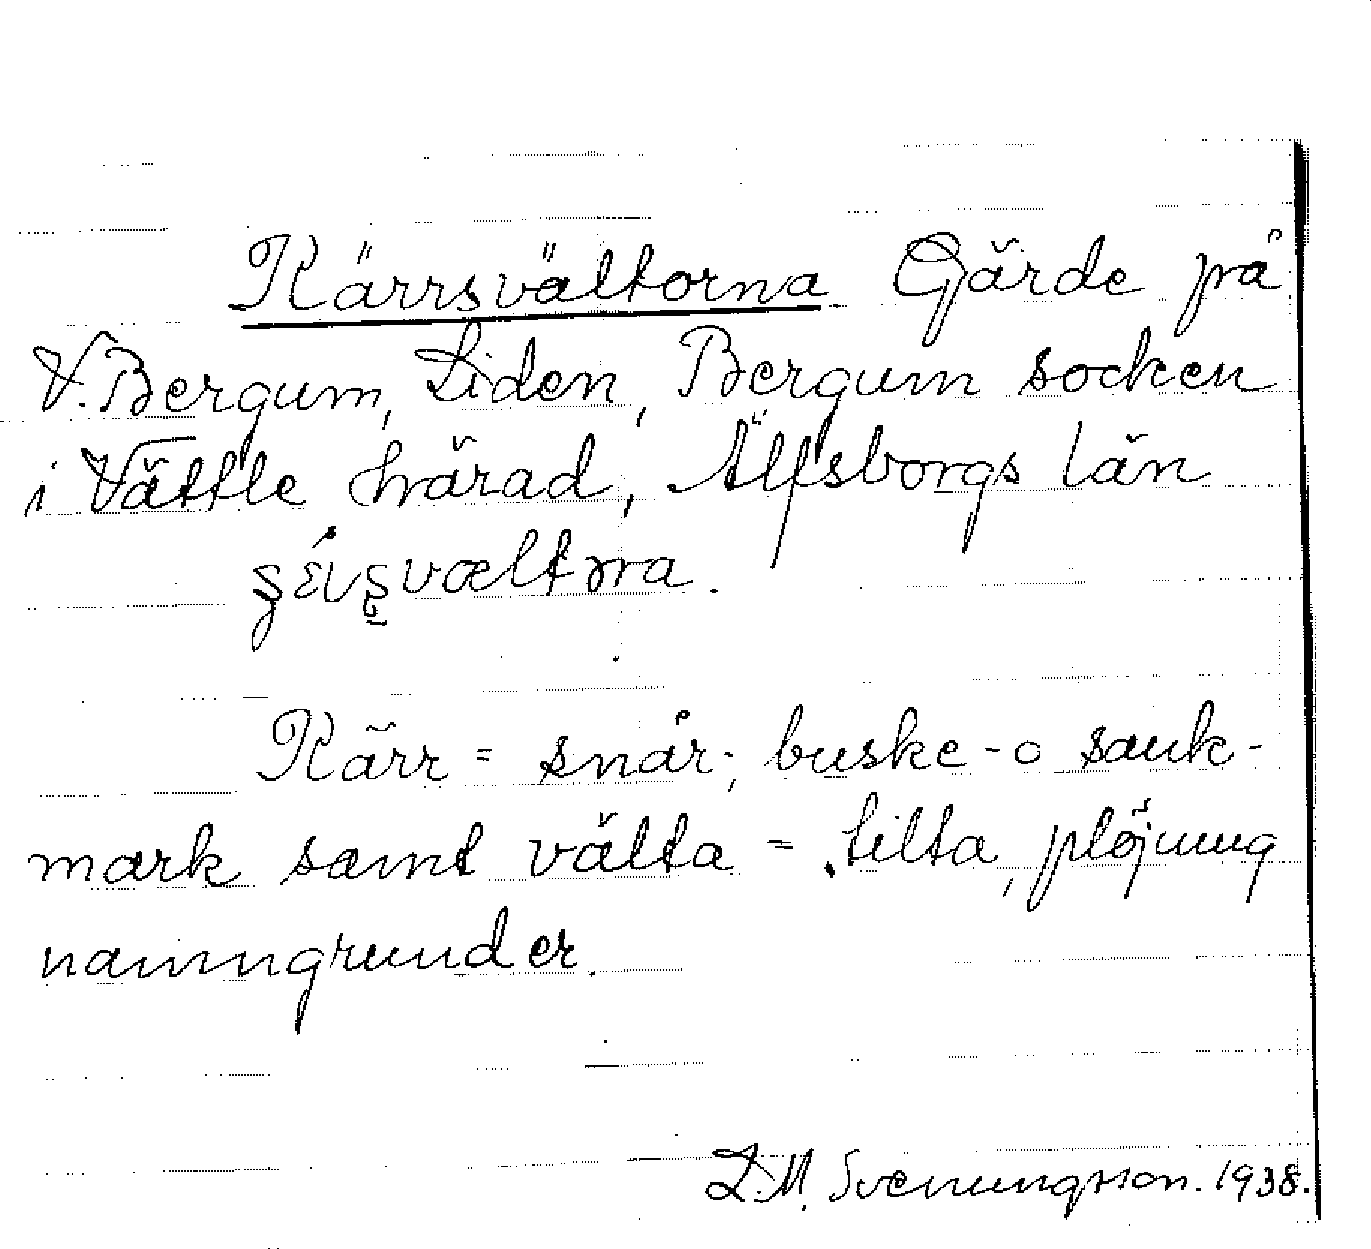 Kärrsvältorna Gärde på
V. Bergum, Liden, Bergum socken
i Vättle härad, Älfsborgs län
Kärr = snår-, buske- o sank-
mark samt välta = tilta, plöjning
namngrunder.
L.M. Svenungsson. 1938.